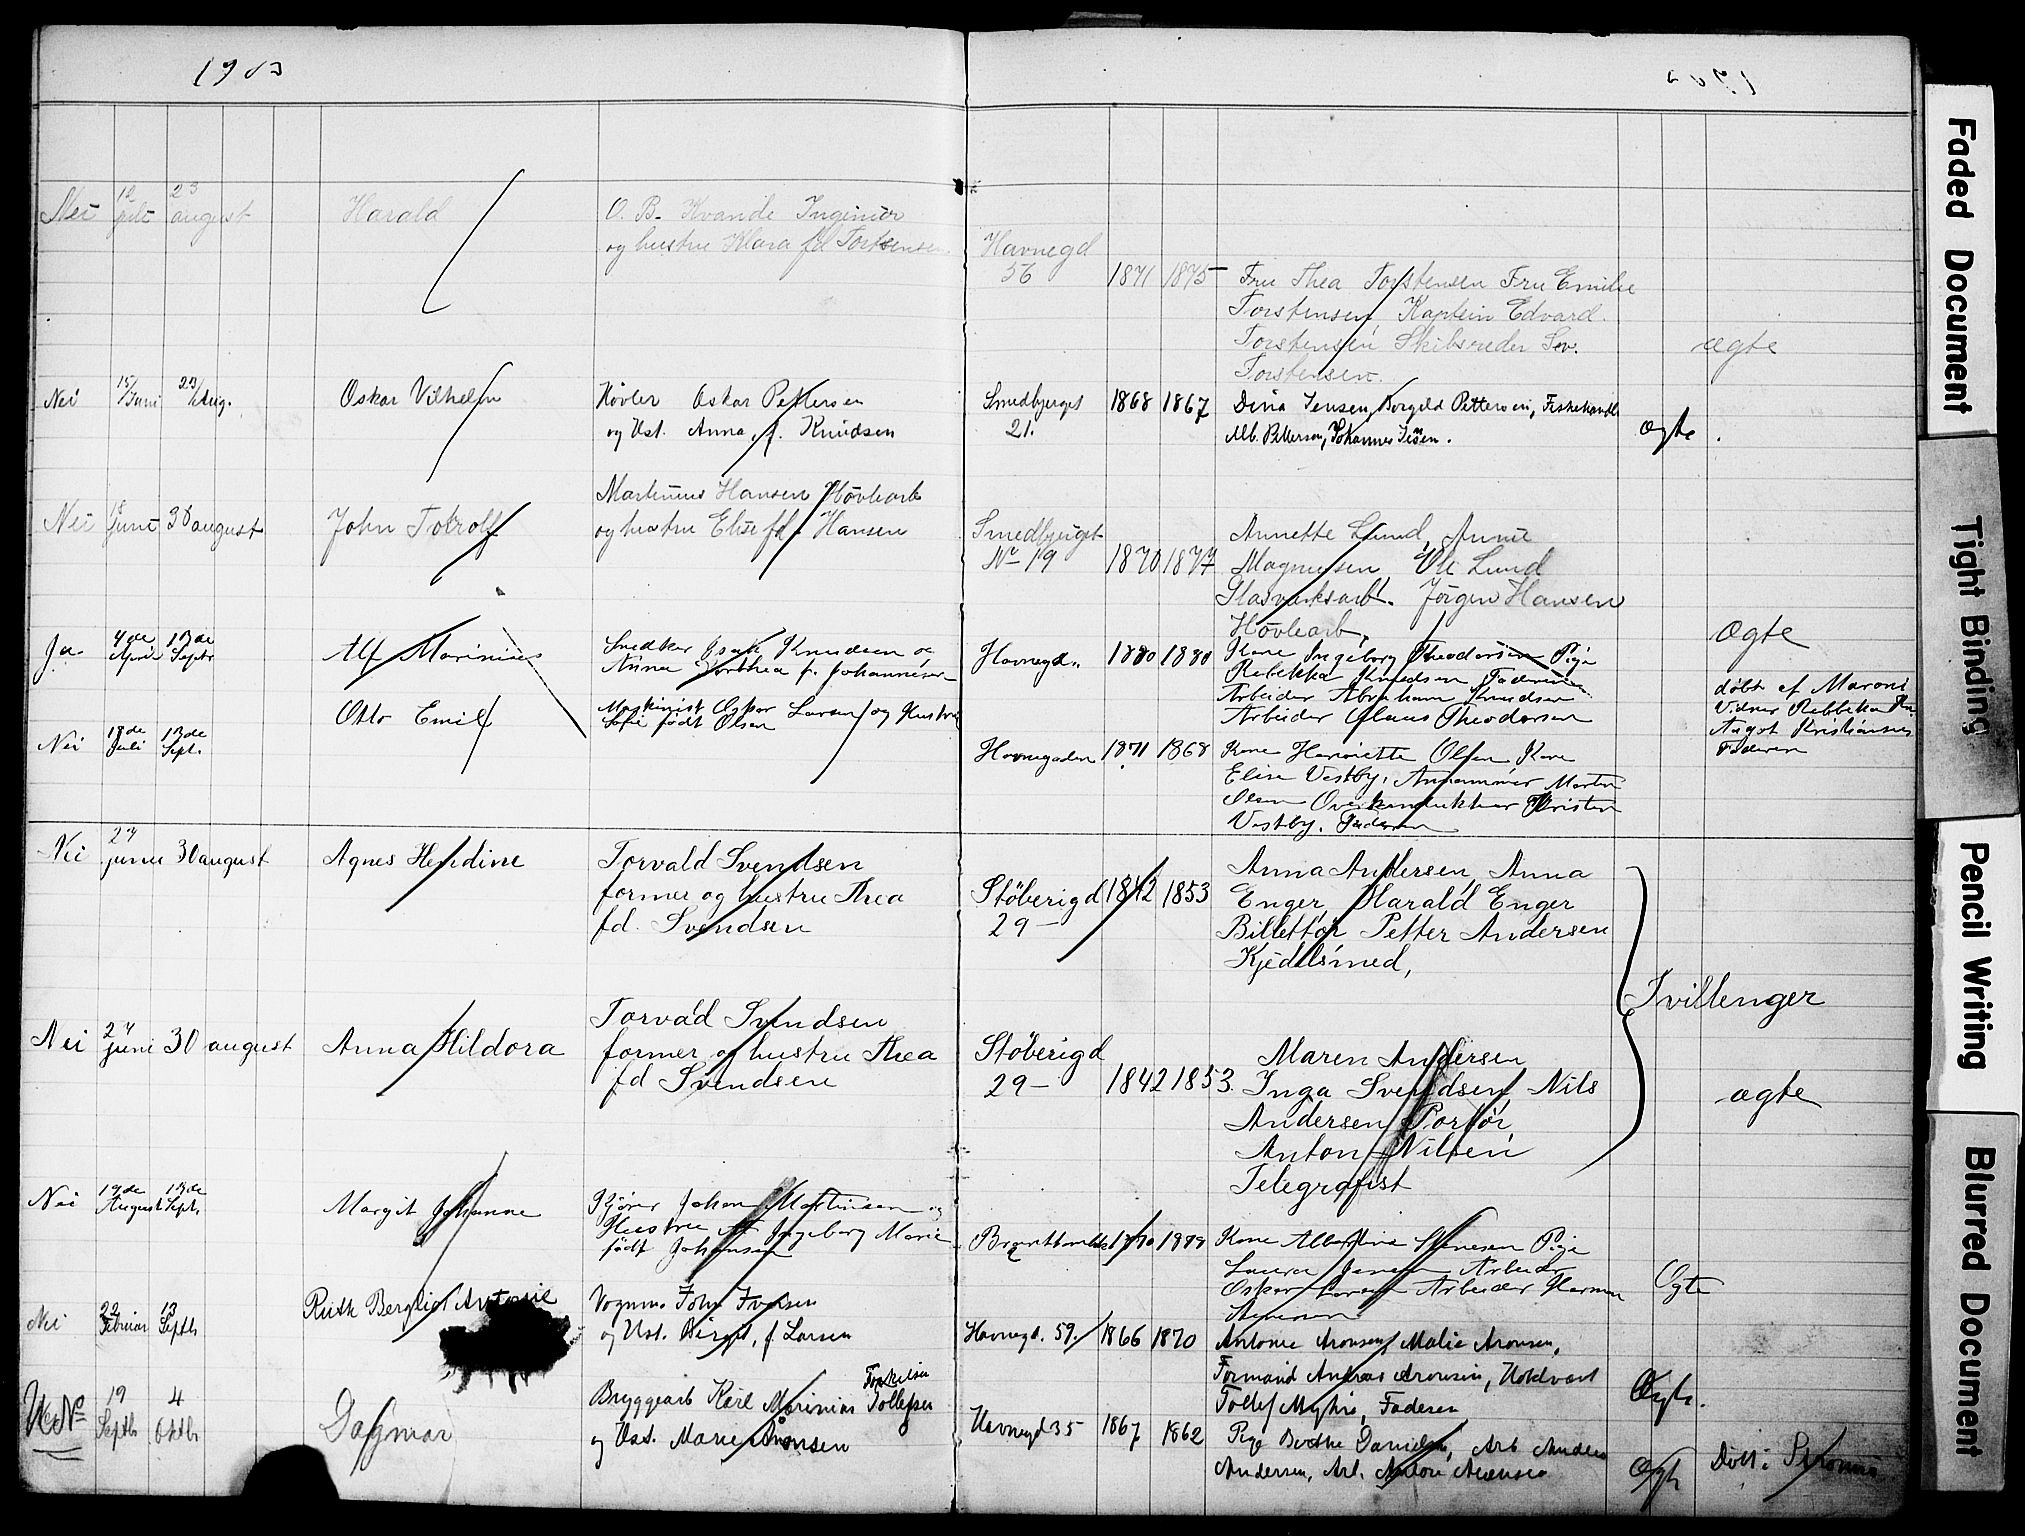 1903
Nei 12 23 august Harald
O. B. Kvande Ingeniør
og hustru Klara fd Torstensen
Havnegd
56 1871 1875
Fru Thea Torstensen Fru Emilie
Torstensen Kaptein Edvard
Torstensen Skibsreder Sev.
Torstensen.
ægte
Nei 15/Juni 23/Aug. Oskar Vilhelm
Høvler Oskar Pettersen
og Hst. Anna f. Knudsen
Smedbjerget
21. 1868 1867
Dina Jensen, Borgild Pettersen, Fiskehandl
Alb. Pettersen, Johannes Jensen.
Ægte
Nei 18 juni 30 august John Totrolf
Martinius Hansen Høvlearb
og hustru Elise fd. Hansen
Smedbjerget
No 19 1870 1877
Annette Lund, Anne
Magnussen, Ole Lund
Glasværksarb. Jörgen Hansen
Høvlearb.
Ægte
Ja 4de April 13de Septr Alf Marinius
Snedker Isak Knudsen og
Anna Dorthea f. Johannesen
Havnegd. 1880 1880
Kone Ingeborg Theodorsen Pige
Rebekka Knudsen Faderen
Arbeider Abraham Knudsen
Arbeider Claus Theodorsen
døbt af Maroni
Vidner Rebbeka
August Kristiansen
Faderen
Nei 18de Juli 13de Sept. Otto Emil
Maskinist Oskar Larsen og Hustru
Sofie født Olsen
Havnegaden 1871 1868
Kone Henriette Olsen Kone
Elise Vestby, Martin
Olsen Overkonduktør Kristen
Vestby. Faderen
Nei 27 juni 30 august Agnes Hendine
Torvald Svendsen
former og hustru Thea
fd. Svendsen
Støberigd
29 1842 1853
Anna Andersen, Anna
Enger, Harald Enger
Billettør Petter Andersen
Kjedelsmed,
Tvillenger
Nei 27 juni 30 august Anna Hildora
Torvad Svendsen
former og hustru Thea
fd Svendsen
Støberigd
29 1842 1853
Maren Andersen
Inga Svendsen Nils
Andersen Portör,
Anton Nilsen
Telegrafist
ægte
Nei 19de August 13de Septr Margit Johanne
Kjører Johan Martinsen og
Hustru Ingeborg Marie
født Johansen
Kone Albertine Stenesen Pige
Laura Jensen Arbeider
Oskar Larsen Arbeider Herman
Stenesen
Ægte
Nei 22 Februar 13 Septb Ruth Bergliot Antonie
Vognm. John Iversen
og Hst. Birgit, f. Larsen
Havnegd. 59. 1866 1870
Antonie Aronsen, Malie Aronsen,
Formand Andreas Aronsen, Holdvart
Tollef Myhre, Faderen
Ægte.
Nei 19 Septb 4 Oktbr Dagmar
Bryggearb Karl Marinius Tollefsen
Torkelsen
og Hst. Marie Aronsen
Havnegd 35 1867 1862
Pige Berthe Danielsen, Arb Anders
Andersen, Arb. Antoni Aronsen
Ægte
Faded Document
Tight Binding
Pencil Writing
Blurred Document